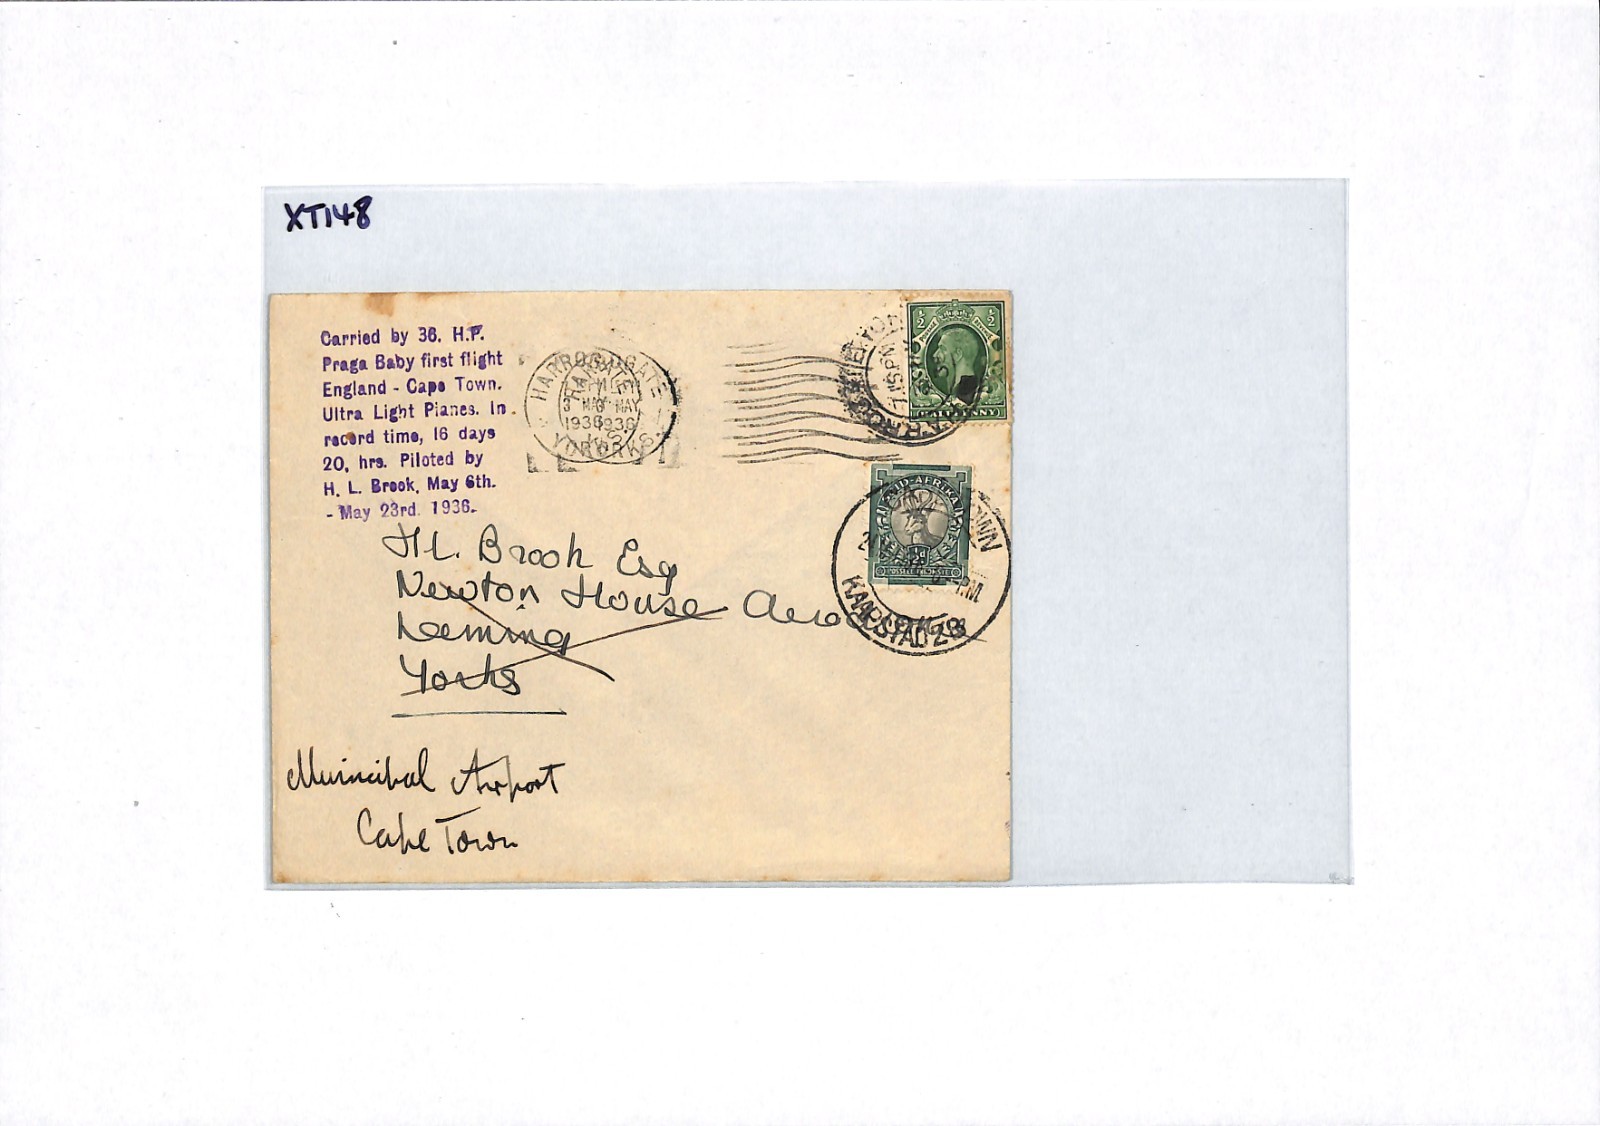 XT148
Carried by 36. H.P.
Praga Baby first flight
England - Cape Town.
Ultra Light Planes. In
record time, 16 days
20, hrs. Piloted by
H. L. Brook, May 6th.
- May 23rd. 1936.
HARROGATE
MAY
1936 1936
YORKS
7.15 PM
½ ½
HALFPENNY
SUID-AFRIKA
POSSEEL INKOMSTE
KAAPSTAD 28
H.L. Brook Esq
Newton House
Leeming
Yorks
Municibal Airport
Cape Town